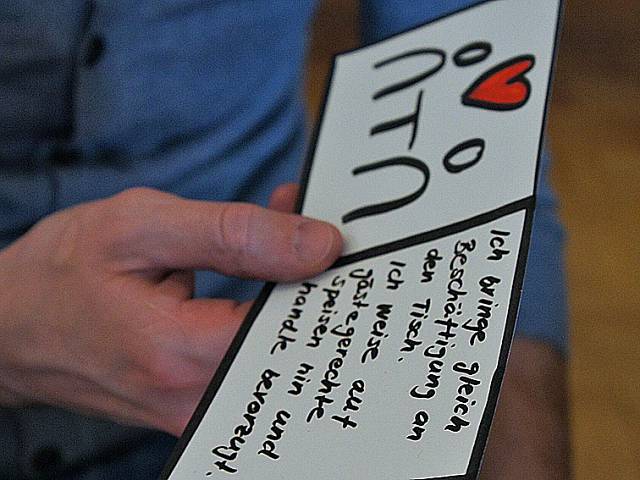 Ich bringe gleich
Beschäftigung an
den Tisch.
Ich weise auf
gästegerechte
Speisen hin und
handle bevorzugt.